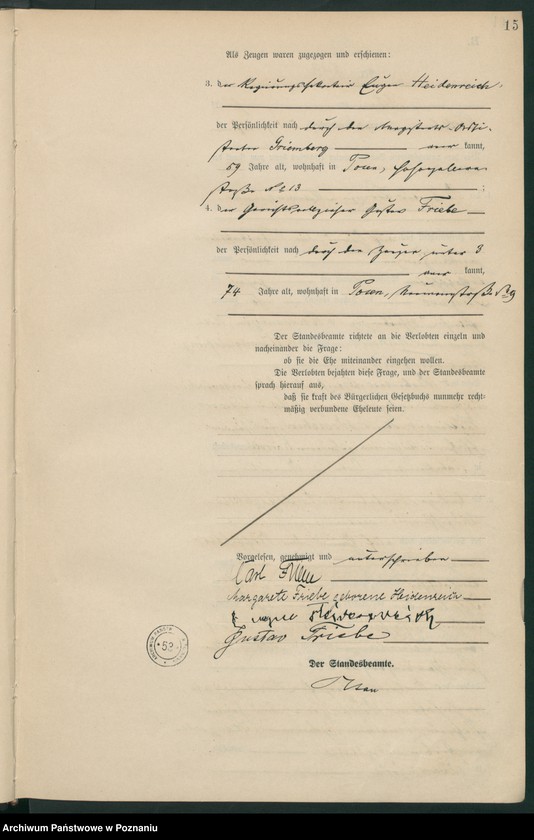 15
Als Zeugen waren zugezogen und erschienen:
3. der Regierungssekretär Eugen Heidenreich,
der Persönlichkeit nach durch den Magistrats-
kannt,
59 Jahre alt, wohnhaft in Posen, Hohenzollern-
straße № 13 ;
4. der Gerichtsvollzieher Gustav Friebe
der Persönlichkeit nach durch den Zeugen unter 3
aner kannt,
74 Jahre alt, wohnhaft in Posen, № 9
Der Standesbeamte richtete an die Verlobten einzeln und
nacheinander die Frage:
ob sie die Ehe miteinander eingehen wollen.
Die Verlobten bejahten diese Frage, und der Standesbeamte
sprach hierauf aus,
daß sie kraft des Bürgerlichen Gesetzbuchs nunmehr recht-
mäßig verbundene Eheleute seien.
Vorgelesen, genehmigt und unterschrieben
Carl Friebe
Margarete Friebe geborene Heidenreich
Eugen Heidenreich
Gustav Friebe
Der Standesbeamte.
52
Archiwum Państwowe w Poznaniu